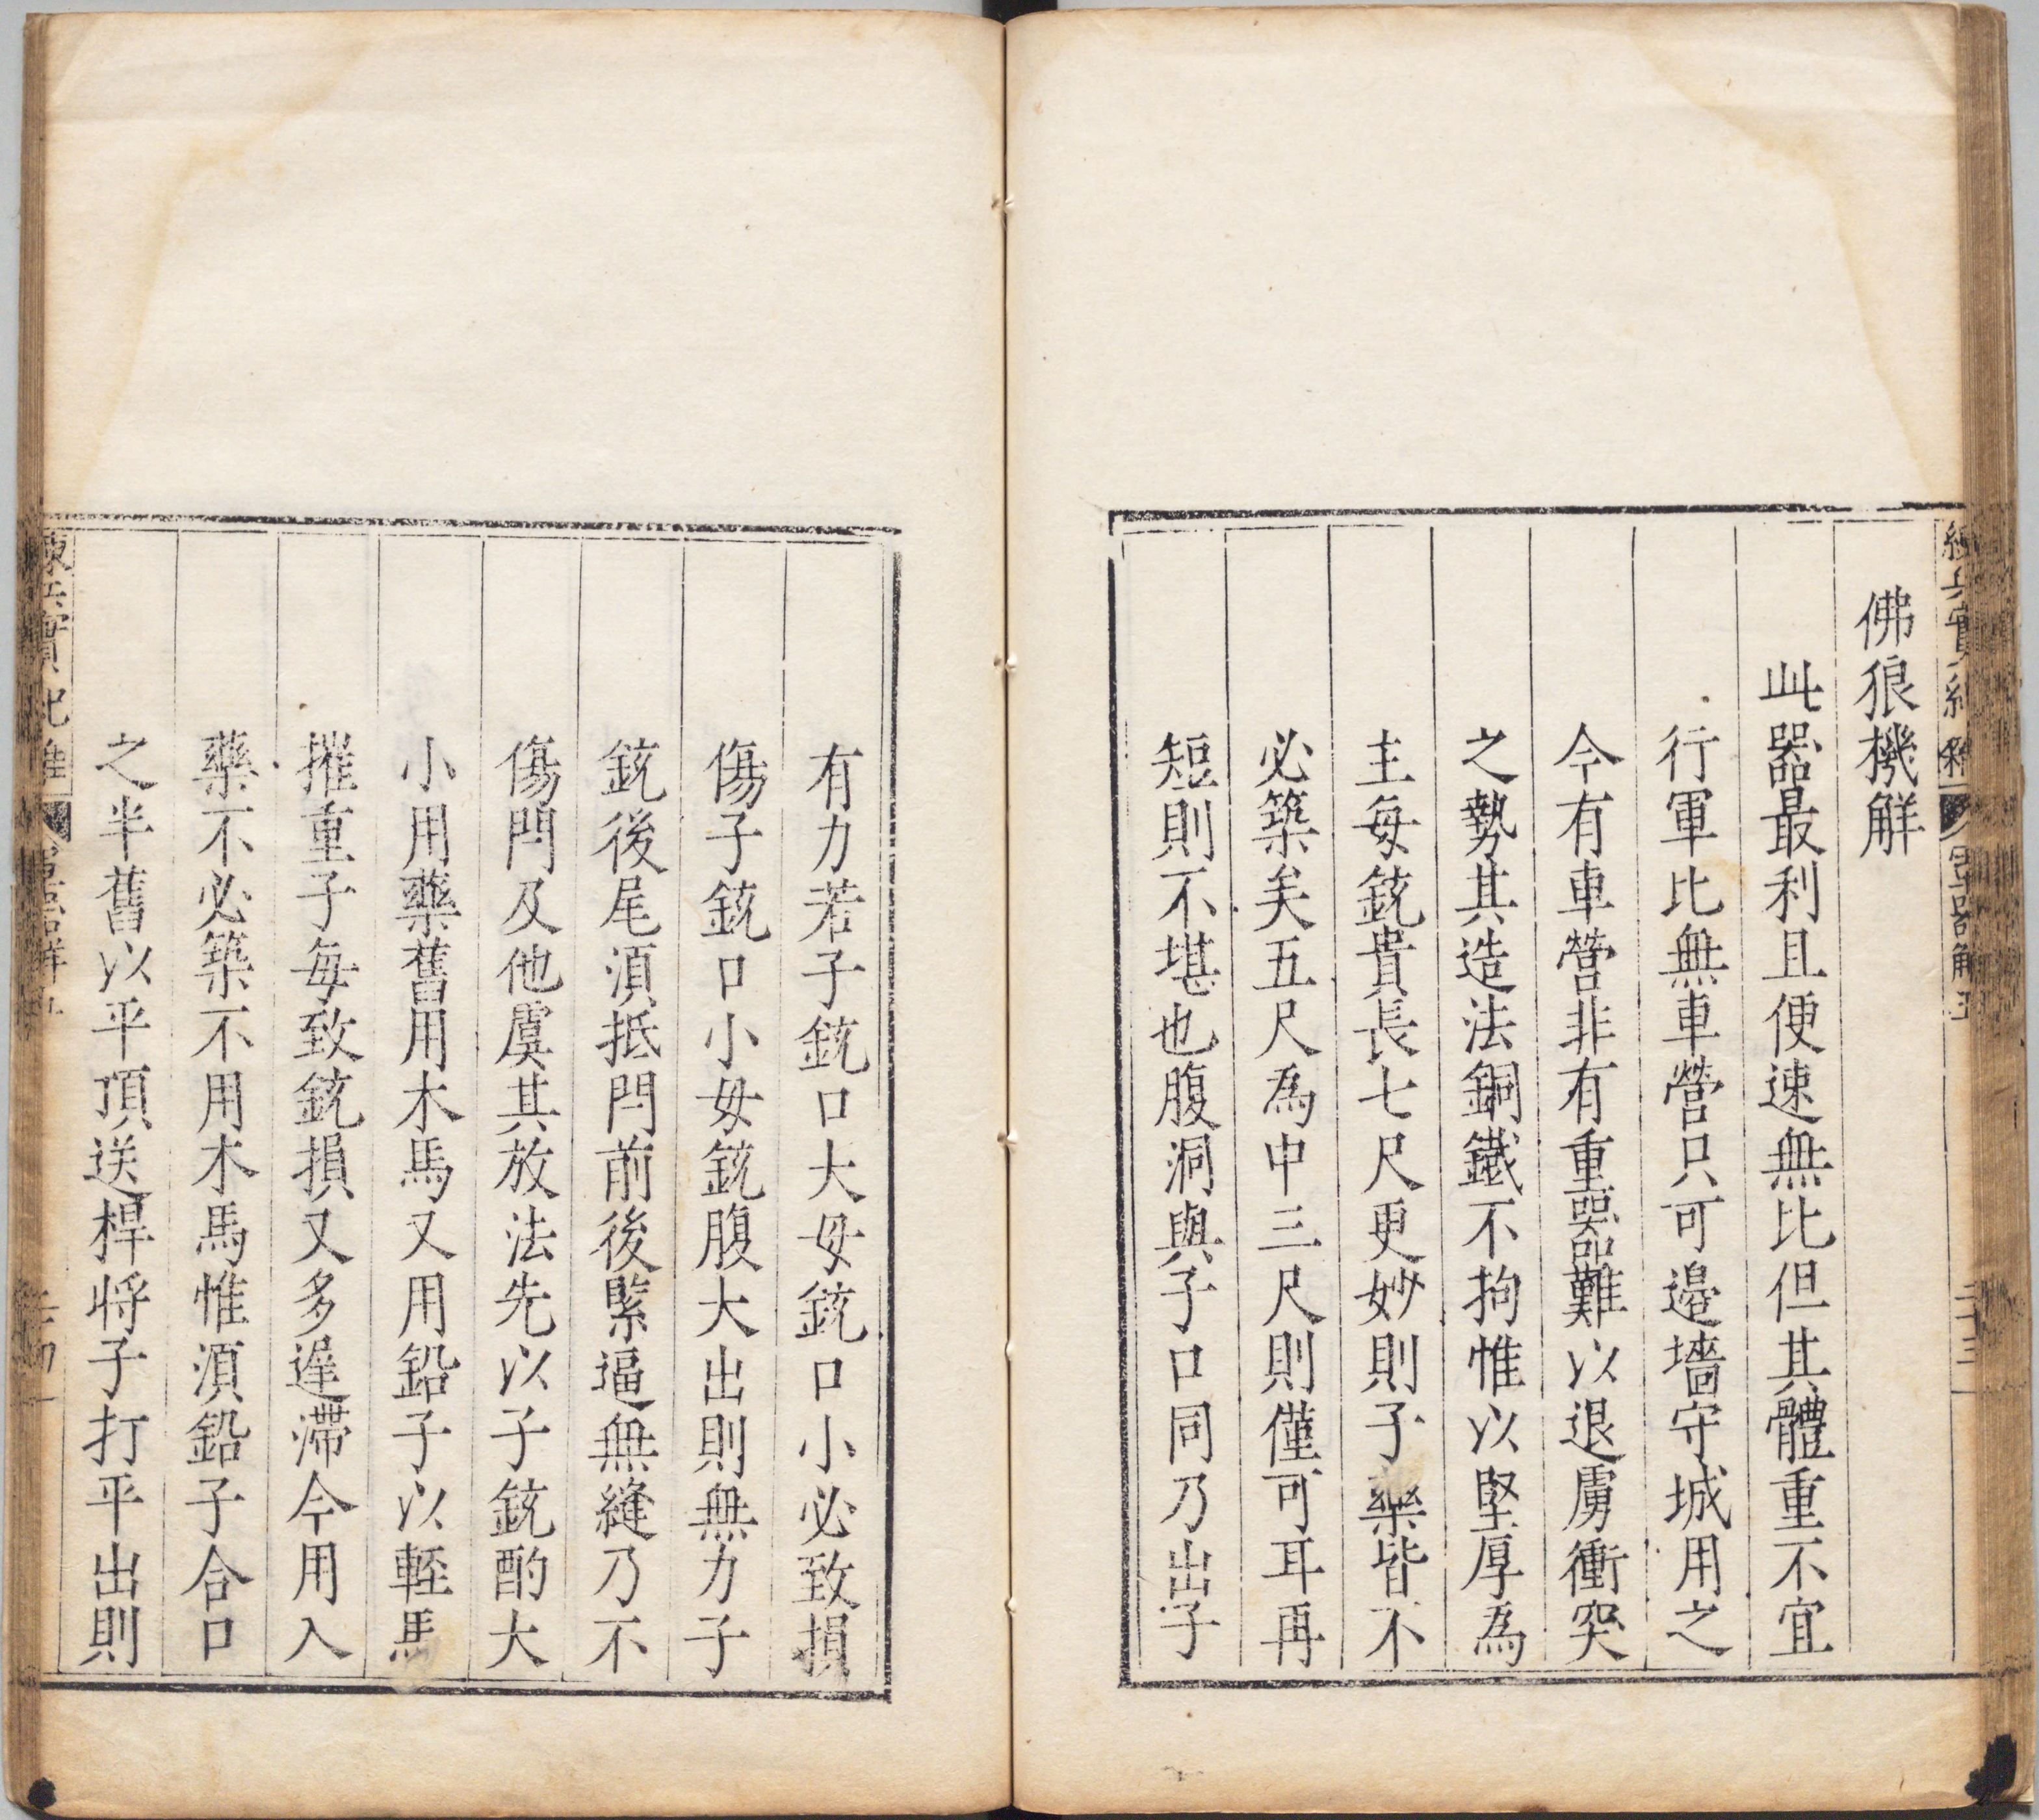 佛狼機解
此器最利且便速無比但其體重不宜
行軍比無車營只可邉墻守城用之
今有車營非有重器難以退虜衝突
之勢其造法銅鐵不拘惟以堅厚為
主每銃貴長七尺更妙則子藥皆不
必築矣五尺為中三尺則僅可耳再
短則不堪也腹洞與子口同乃出子
有力若子銃口大母銃口小必致損
傷子銃口小母銃腹大出則無力子
銃後尾須抵閂前後緊逼無縫乃不
傷閂及他虞其放法先以子銃酌大
小用藥舊用木馬又用鉛子以輕馬
摧重子每致銃損又多遲滯今用入
藥不必築不用木馬惟須鉛子合口
之半舊以平頂送桿将子打平出則